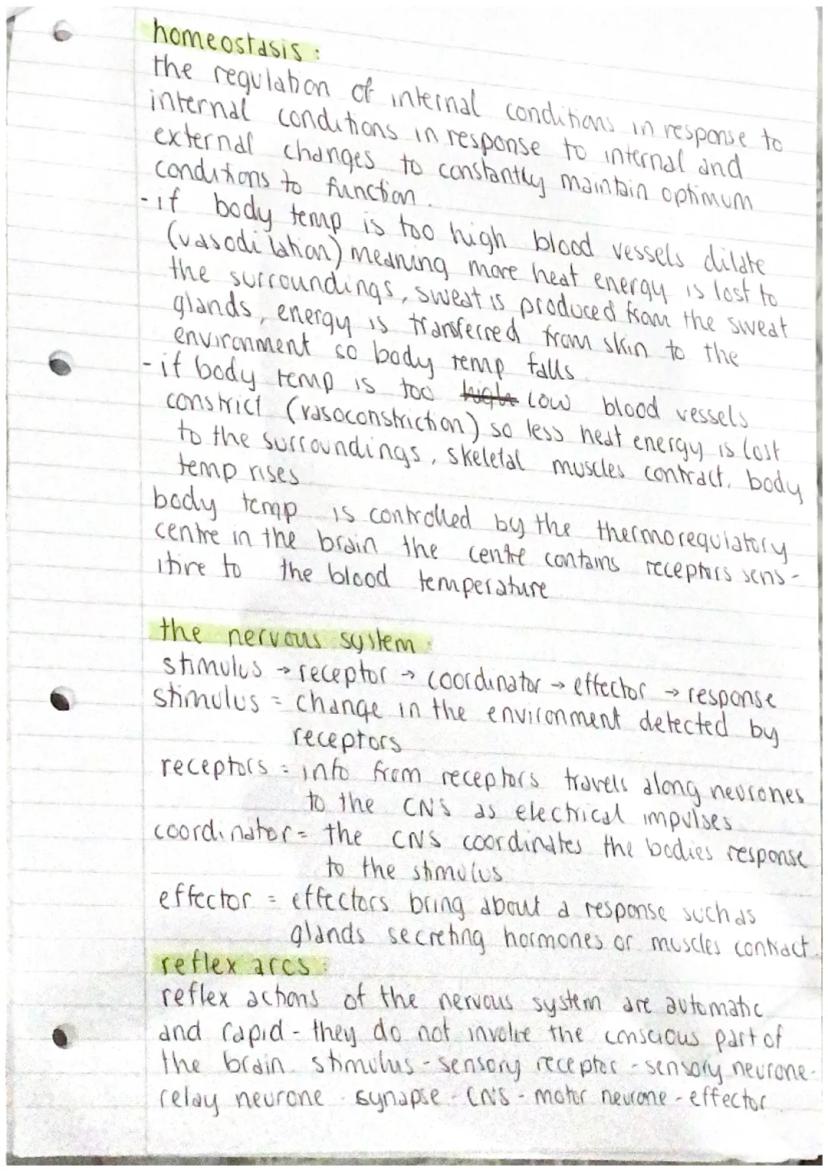 homeostasis:
the regulation of internal conditions in response to
internal conditions in response to internal and
external changes to constantly maintain optimum
conditions to function.
- if body temp is too high blood vessels dilate
(vasodilation) meaning more heat energy is lost to
the surroundings, sweat is produced from the sweat
glands, energy is transferred from skin to the
environment so body temp falls.
- if body temp is too high low blood vessels
constrict (vasoconstriction) so less heat energy is lost
to the surroundings, skeletal muscles contract. body
temp rises
body temp is controlled by the thermoregulatory
centre in the brain the centre contains receptors sens-
itive to the blood temperature
the nervous system:
stimulus → receptor → coordinator → effector → response
stimulus = change in the environment detected by
receptors
receptors = info from receptors travels along neurones
to the CNS as electrical impulses
coordinator = the CNS coordinates the bodies response
to the stimulus
effector = effectors bring about a response such as
glands secreting hormones or muscles contract.
reflex arcs:
reflex actions of the nervous system are automatic
and rapid - they do not involve the conscious part of
the brain. stimulus - sensory receptor - sensory neurone -
relay neurone - synapse - CNS - motor neurone - effector